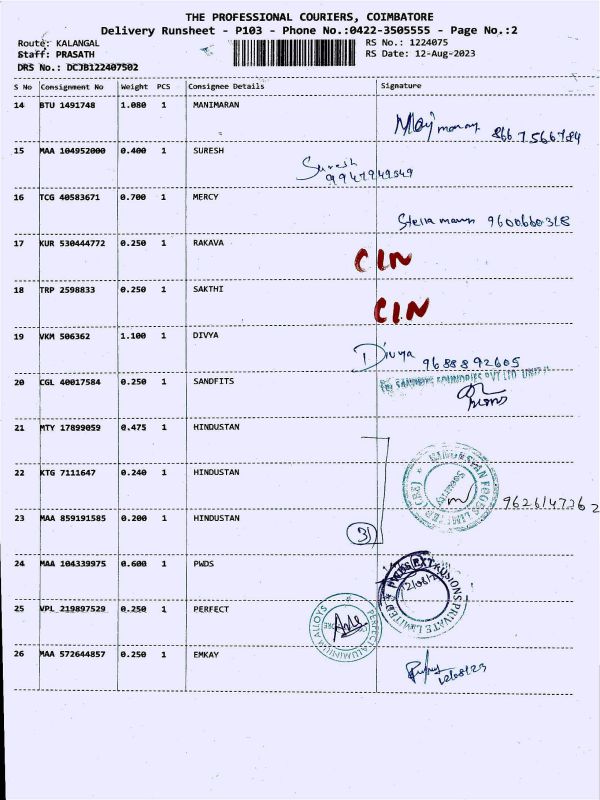 THE PROFESSIONAL COURIERS, COIMBATORE
Delivery Runsheet - P103 - Phone No.:0422-3505555 - Page No.:2
Route: KALANGAL
RS No.: 1224075
Staff: PRASATH
RS Date: 12-Aug-2023
DRS No.: DCJB122407502
S No Consignment No Weight PCS Consignee Details Signature
14 BTU 1491748 1.080 1 MANIMARAN
8667566784
15 MAA 104952000 0.400 1 SURESH
Suresh
9947949549
16 TCG 40583671 0.700 1 MERCY
Stella 9600660328
17 KUR 530444772 0.250 1 RAKAVA
CIN
18 TRP 2598833 0.250 1 SAKTHI
CIN
19 VKM 506362 1.100 1 DIVYA
Divya 9688892605
20 CGL 40017584 0.250 1 SANDFITS
21 MTY 17899059 0.475 1 HINDUSTAN
22 KTG 7111647 0.240 1 HINDUSTAN
Security
9626147262
23 MAA 859191585 0.200 1 HINDUSTAN
3
24 MAA 104339975 0.600 1 PWDS
EXTRUSIONS PRIVATE LIMITED
25 VPL 219897529 0.250 1 PERFECT
PERFECT ALUMINIUM ALLOYS
26 MAA 572644857 0.250 1 EMKAY
12/08/23